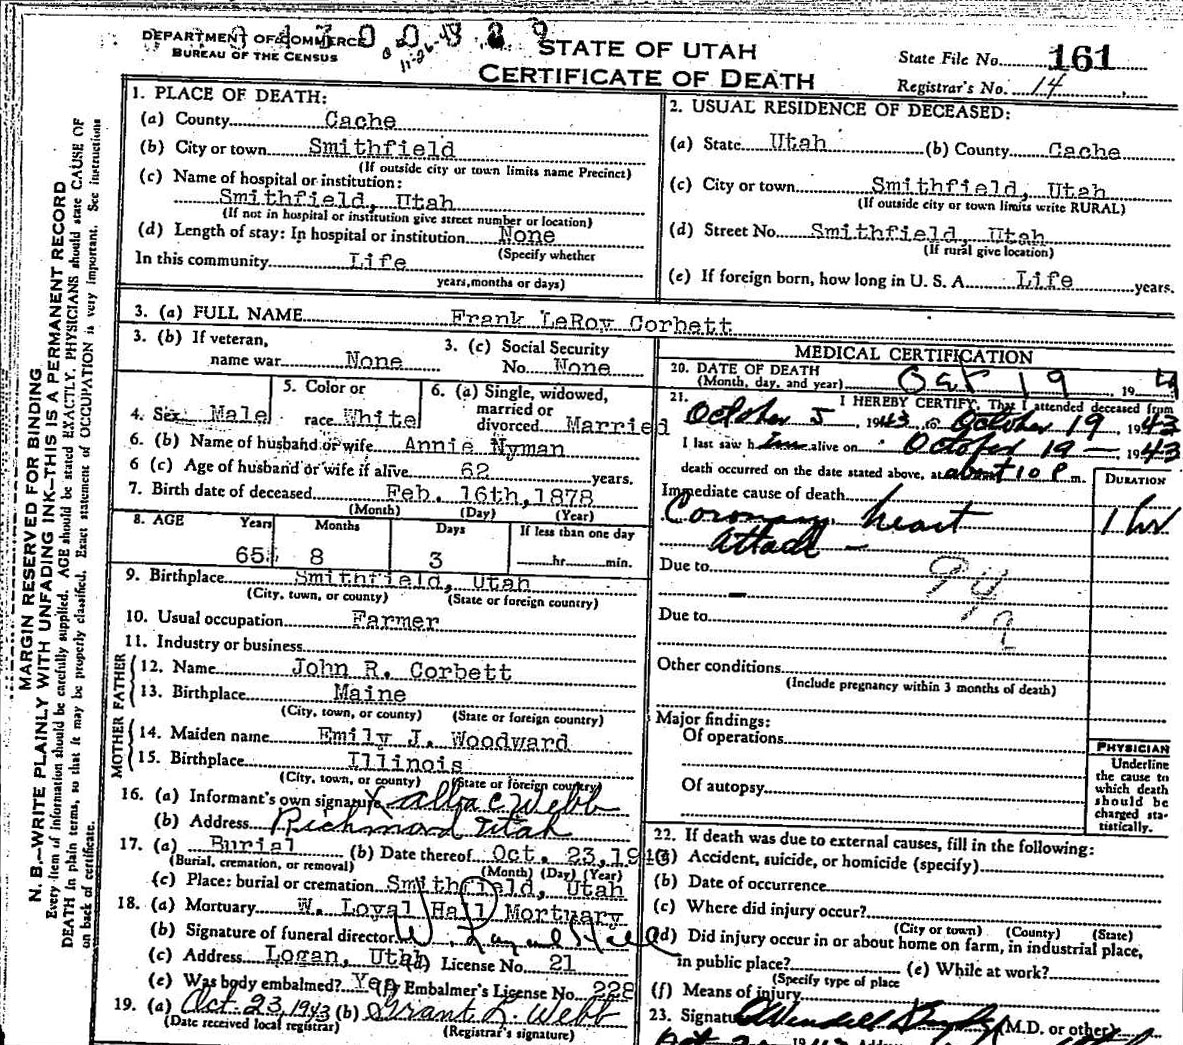 DEPARTMENT OF COMMERCE
BUREAU OF THE CENSUS
11-26-43
STATE OF UTAH
CERTIFICATE OF DEATH
State File No. 161
Registrar's No. 14
MARGIN RESERVED FOR BINDING
N. B.—WRITE PLAINLY WITH UNFADING INK—THIS IS A PERMANENT RECORD
Every item of information should be carefully supplied. AGE should be stated EXACTLY. PHYSICIANS should state CAUSE OF
DEATH in plain terms, so that it may be properly classified. Exact statement of OCCUPATION is very important. See instructions
on back of certificate.
1. PLACE OF DEATH:
(a) County Cache
(b) City or town Smithfield
(If outside city or town limits name Precinct)
(c) Name of hospital or institution:
Smithfield, Utah
(If not in hospital or institution give street number or location)
(d) Length of stay: In hospital or institution None
(Specify whether
In this community Life
years, months or days)
2. USUAL RESIDENCE OF DECEASED:
(a) State Utah (b) County Cache
(c) City or town Smithfield, Utah
(If outside city or town limits write RURAL)
(d) Street No Smithfield, Utah
(If rural give location)
(e) If foreign born, how long in U. S. A. Life years.
3. (a) FULL NAME Frank LeRoy Corbett
3. (b) If veteran,
name war None
3. (c) Social Security
No. None
4. Sex Male
5. Color or
race White
6. (a) Single, widowed,
married or
divorced Married
6. (b) Name of husband or wife Annie Nyman
6 (c) Age of husband or wife if alive 62 years.
7. Birth date of deceased Feb. 16th, 1878
(Month) (Day) (Year)
8. AGE Years Months Days If less than one day
65 8 3 hr. min.
9. Birthplace Smithfield, Utah
(City, town, or county) (State or foreign country)
10. Usual occupation Farmer
11. Industry or business
FATHER
12. Name John R. Corbett
13. Birthplace Maine
(City, town, or county) (State or foreign country)
MOTHER
14. Maiden name Emily J. Woodward
15. Birthplace Illinois
(City, town, or county) (State or foreign country)
16. (a) Informant's own signature X Allia C Webb
(b) Address Richmond Utah
17. (a) Burial (b) Date thereof Oct. 23, 194
(Burial, cremation, or removal) (Month) (Day) (Year)
(c) Place: burial or cremation Smithfield, Utah
18. (a) Mortuary W. Loyal Hall Mortuary
(b) Signature of funeral director W. Hall
(c) Address Logan, Utah (d) License No. 21
(e) Was body embalmed? Yes (f) Embalmer's License No. 228
19. (a) Oct. 23, 1943 (b) Grant L. Webb
(Date received local registrar) (Registrar's signature)
MEDICAL CERTIFICATION
20. DATE OF DEATH
(Month, day, and year) Oct 19, 19
21. I HEREBY CERTIFY, That I attended deceased from
October 5 1943 to October 19 1943
I last saw him alive on October 19 — 1943
death occurred on the date stated above, at about 10 P m.
DURATION
Immediate cause of death
Coronary heart 1 hr
attack —
Due to 94
Due to
Other conditions
(Include pregnancy within 3 months of death)
Major findings:
Of operations
Of autopsy
PHYSICIAN
Underline
the cause to
which death
should be
charged sta-
tistically.
22. If death was due to external causes, fill in the following:
(a) Accident, suicide, or homicide (specify)
(b) Date of occurrence
(c) Where did injury occur?
(City or town) (County) (State)
(d) Did injury occur in or about home on farm, in industrial place,
in public place? (e) While at work?
(Specify type of place
(f) Means of injury
23. Signature (M.D. or other)